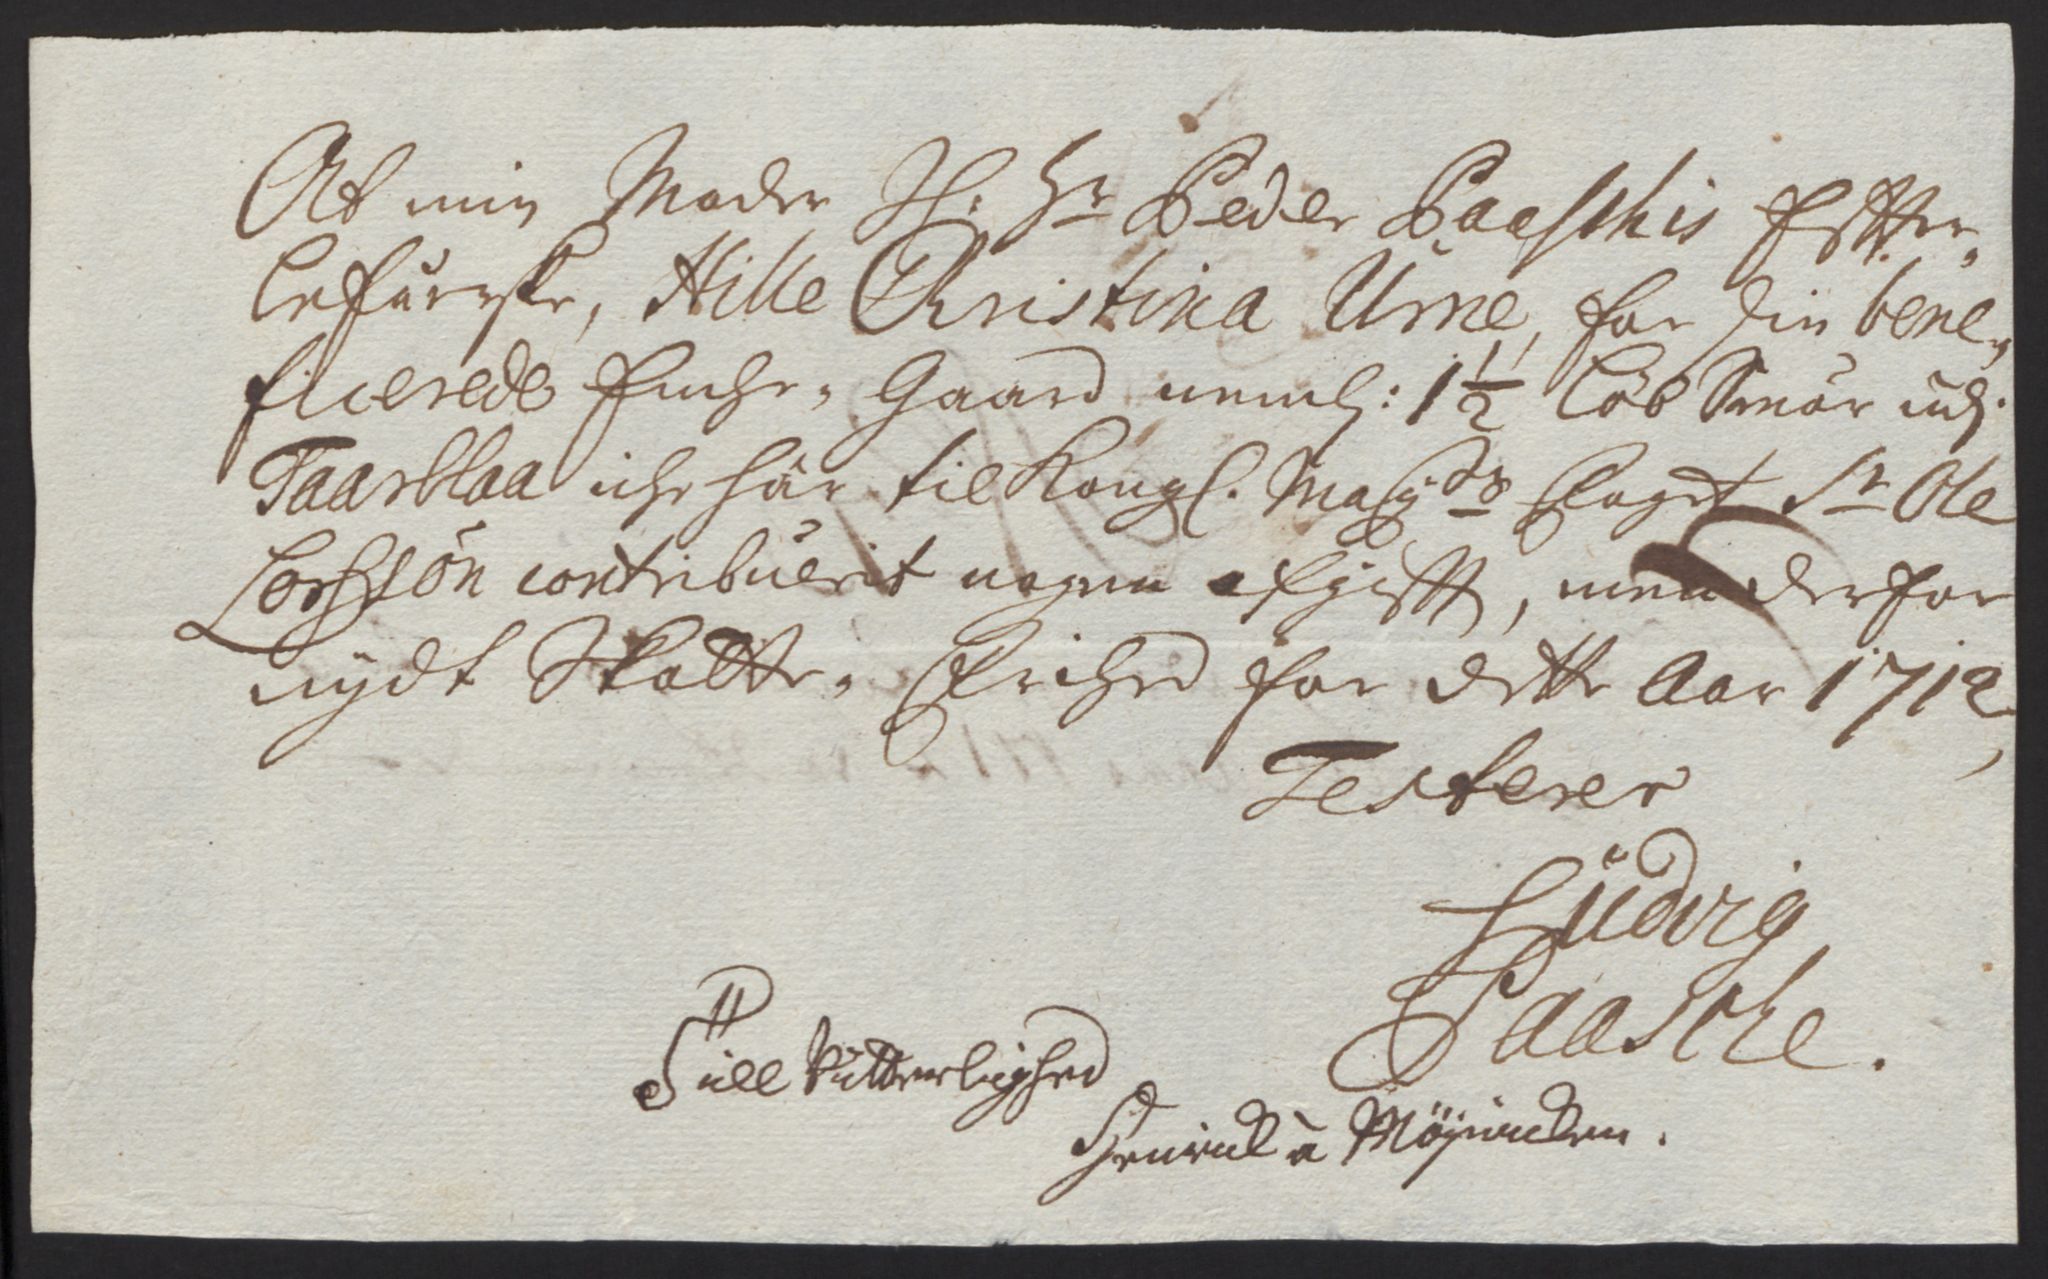 At min Moder Sl: Hr Peder Paaschis Effter„
lefwerske, Hille Christina Urne, for sin bene„
ficerede Enche„ Gaard neml: 1 1/2 Löb Smör udj
Taarblaa iche haver til Kongl. Maÿts Foget Sr Ole
Larssön contribuerit nogen afgifft, men derfor
nydt Skatte„ Frihed for dette Aar 1712,
Testerer
Ludvig
Paasche.
Till Vitterlighed
Henrick à Möÿnichen.